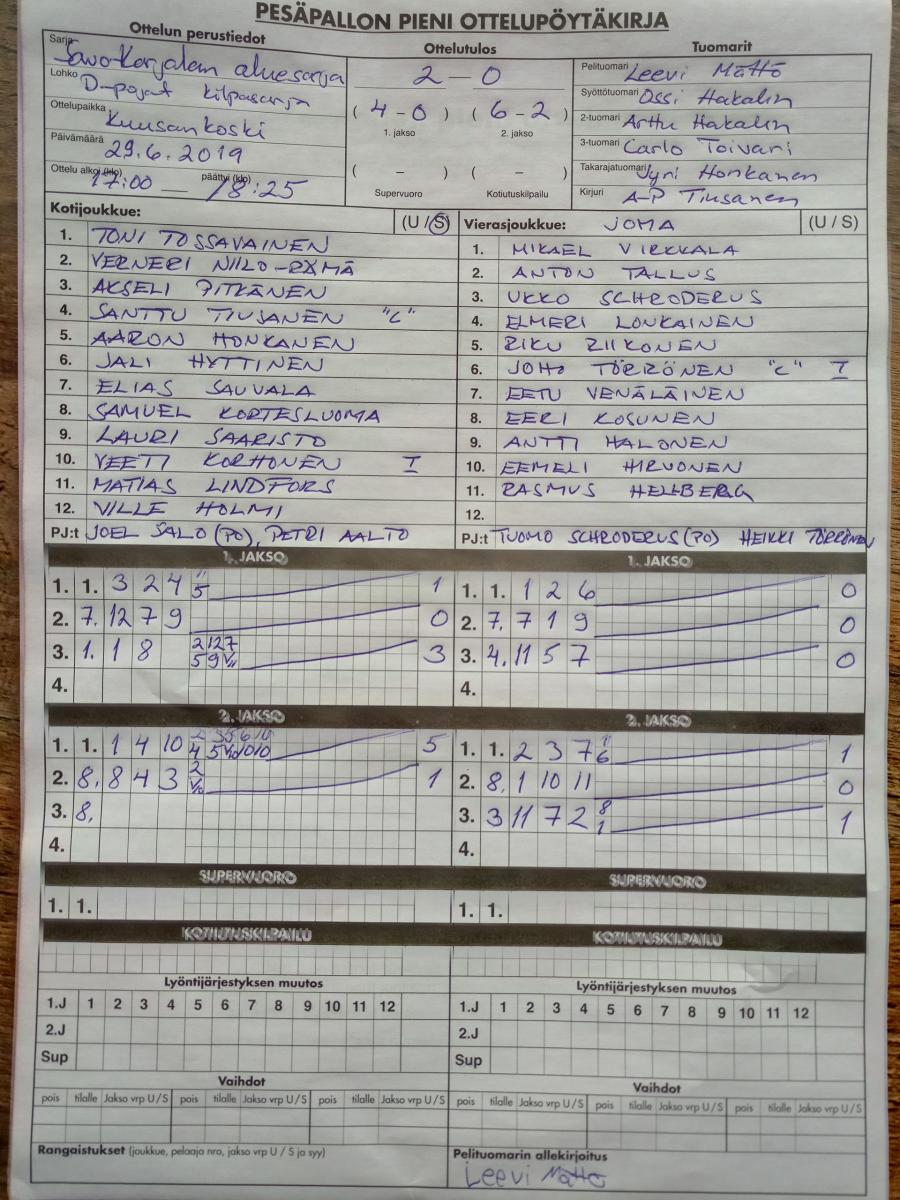 PESÄPALLON PIENI OTTELUPÖYTÄKIRJA
Ottelun perustiedot
Ottelutulos
Tuomarit
Sarja Savo-Karjalan aluesarja
Lohko D-pojat kilpasarja
Ottelupaikka Kuusankoski
Päivämäärä 29.6.2019
Ottelu alkoi (klo) 17:00 — päättyi (klo) 18:25
2 – 0
( 4 - 0 ) ( 6 - 2 )
1. jakso 2. jakso
( – ) ( – )
Supervuoro Kotiutuskilpailu
Pelituomari Leevi Mättö
Syöttötuomari Ossi Hakalin
2-tuomari Arttu Hakalin
3-tuomari Carlo Toivari
Takarajatuomari Jyri Honkanen
Kirjuri A-P Tiusanen
Kotijoukkue: (U / S)
1. TONI TOSSAVAINEN
2. VERNERI NIILO-RÄMÄ
3. AKSELI PITKÄNEN
4. SANTTU TIUSANEN "C"
5. AARON HONKANEN
6. JALI HYTTINEN
7. ELIAS SAUVALA
8. SAMUEL KORTESLUOMA
9. LAURI SAARISTO
10. VEETI KORHONEN I
11. MATIAS LINDFORS
12. VILLE HOLMI
PJ:t JOEL SALO (PO), PETRI AALTO
Vierasjoukkue: JOMA (U / S)
1. MIKAEL VIRKKALA
2. ANTON TALLUS
3. UKKO SCHRODERUS
4. ELMERI LOUKAINEN
5. RIKU RIIKONEN
6. JOHO TÖRRÖNEN "C" I
7. EETU VENÄLÄINEN
8. EERI KOSUNEN
9. ANTTI HALONEN
10. EEMELI HIRVONEN
11. RASMUS HELLBERG
12.
PJ:t TUOMO SCHRODERUS (PO) HEIKKI TÖRRÖNEN
1. JAKSO
1. 1. 3 2 4 11 5 1
2. 7. 12 7 9 0
3. 1. 1 8 2 12 7 5 9 3
4.
1. JAKSO
1. 1. 1 2 6 0
2. 7. 7 1 9 0
3. 4. 11 5 7 0
4.
2. JAKSO
1. 1. 1 4 10 5
2. 8. 8 4 3 2 1
3. 8.
4.
2. JAKSO
1. 1. 2 3 7 11 6 1
2. 8. 1 10 11 0
3. 3 11 7 2 8 1 1
4.
SUPERVUORO
1. 1.
SUPERVUORO
1. 1.
KOTIUTUSKILPAILU
KOTIUTUSKILPAILU
Lyöntijärjestyksen muutos
1.J 1 2 3 4 5 6 7 8 9 10 11 12
2.J
Sup
Lyöntijärjestyksen muutos
1.J 1 2 3 4 5 6 7 8 9 10 11 12
2.J
Sup
Vaihdot
pois tilalle Jakso vrp U / S pois tilalle Jakso vrp U / S pois tilalle Jakso vrp U / S
Vaihdot
pois tilalle Jakso vrp U / S pois tilalle Jakso vrp U / S pois tilalle Jakso vrp U / S
Rangaistukset (joukkue, pelaaja nro, jakso vrp U / S ja syy)
Pelituomarin allekirjoitus
Leevi Mättö